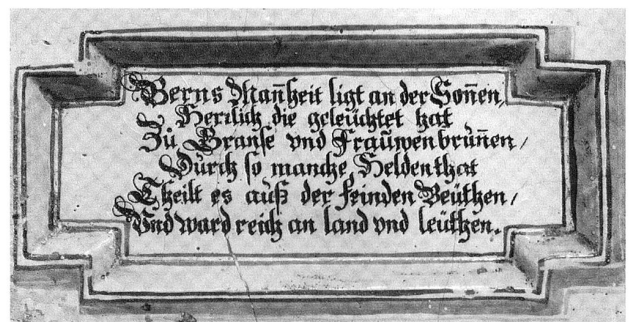 Berns Mañheit ligt an der Soñen,
Herrlich die geleüchtet hat
Zů Granse vnd Frauwenbruñen /
Durch so manche Heldenthat
Theilt es auß der feinden Beüthen /
Vnd ward reich an land vnd leüthen.